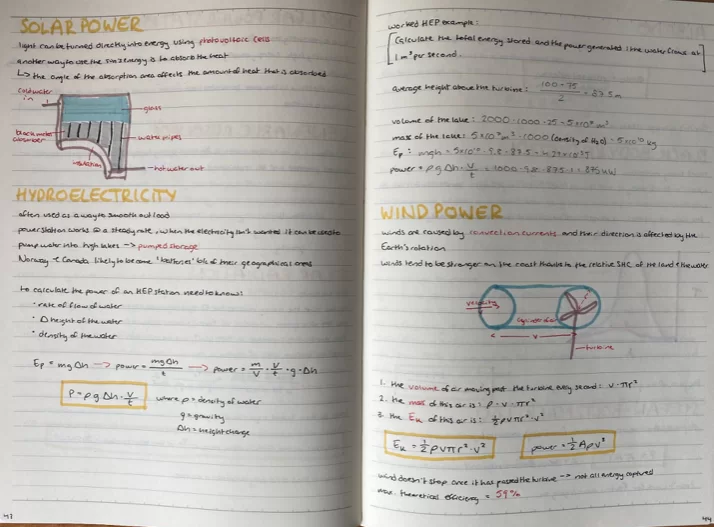 SOLAR POWER
light can be turned directly into energy using photovoltaic cells
another way to use the sun's energy is to absorb the heat
↳ the angle of the absorption area affects the amount of heat that is absorbed
cold water in
glass
black metal absorber
water pipes
insulation
hot water out
HYDROELECTRICITY
often used as a way to smooth out load
power station works @ a steady rate, when the electricity isn't wanted it can be used to
pump water into high lakes → pumped storage
Norway + Canada likely to become "batteries" b/c of their geographical areas
to calculate the power of an HEP station need to know:
· rate of flow of water
· Δ height of the water
· density of the water
Ep = mgΔh → power = mgΔh/t → power = m/V · V/t · g · Δh
P = ρ g Δh · V/t
where ρ = density of water
g = gravity
Δh = height change
43
worked HEP example:
Calculate the total energy stored and the power generated if the water flows at
1 m³ per second.
average height above the turbine: 100 - 75 / 2 = 87.5m
volume of the lake: 2000 · 1000 · 25 = 5×10⁷ m³
mass of the lake: 5×10⁷ m³ · 1000 (density of H₂O) = 5×10¹⁰ kg
Ep = mgh = 5×10¹⁰ · 9.8 · 87.5 = 4.29×10¹³ J
power = ρ g Δh · V/t = 1000 · 9.8 · 87.5 · 1 = 875 kW
WIND POWER
winds are caused by convection currents and their direction is affected by the
Earth's rotation
winds tend to be stronger on the coast thanks to the relative SHC of the land & the water
velocity
cylinder of air
r
v
turbine
1. the volume of air moving past the turbine every second: v · πr²
2. the mass of this air is: ρ · v · πr²
3. the Ek of this air is: ½ρvπr² · v²
Ek = ½ρvπr² · v²
power = ½Aρv³
wind doesn't stop once it has passed the turbine → not all energy captured
max. theoretical efficiency = 59%
44